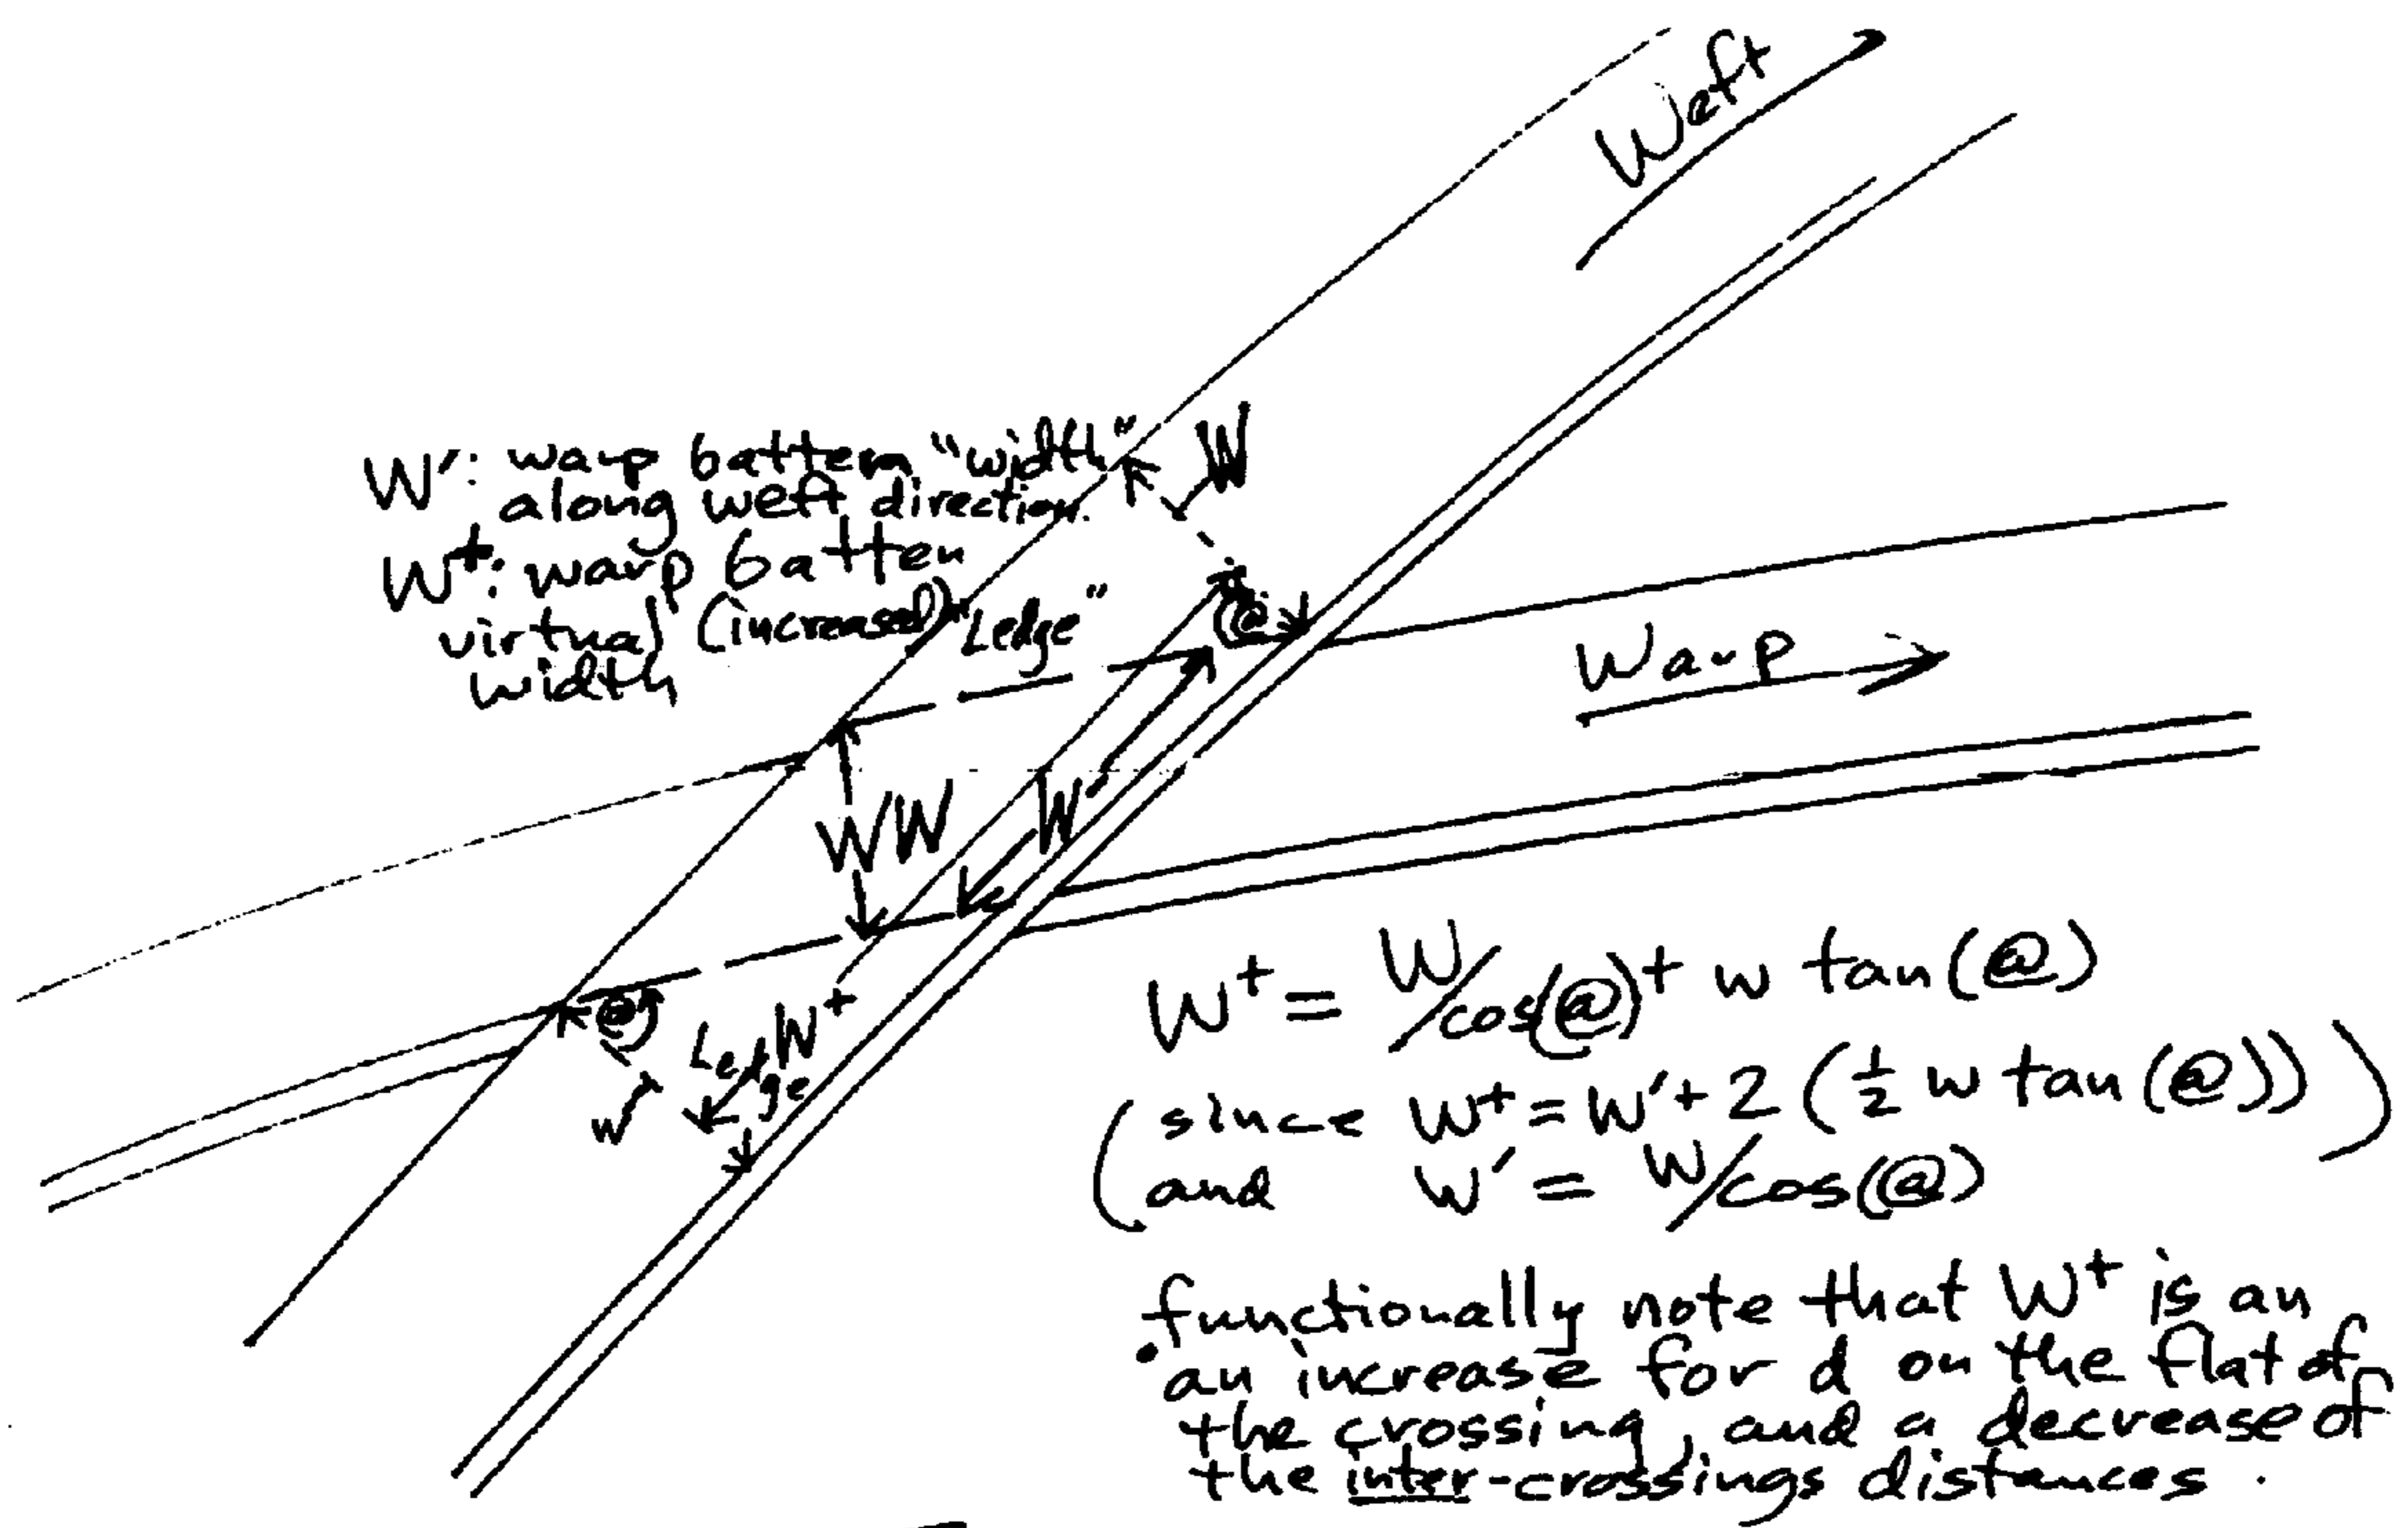 Weft
W
W': warp battem "width"
along weft direction.
W+: warp batten
virtual (increased)
width
"Ledge"
(@)
Warp
WW
W'
(@)
W+
Ledge
w
W+ = W/cos(@) + w tan(@)
(since W+ = W' + 2 (½ w tan(@)))
(and W' = W/cos(@)
functionally note that W+ is an
• an increase for d on the flat of
the crossing, and a decrease of
the inter-crossings distances.